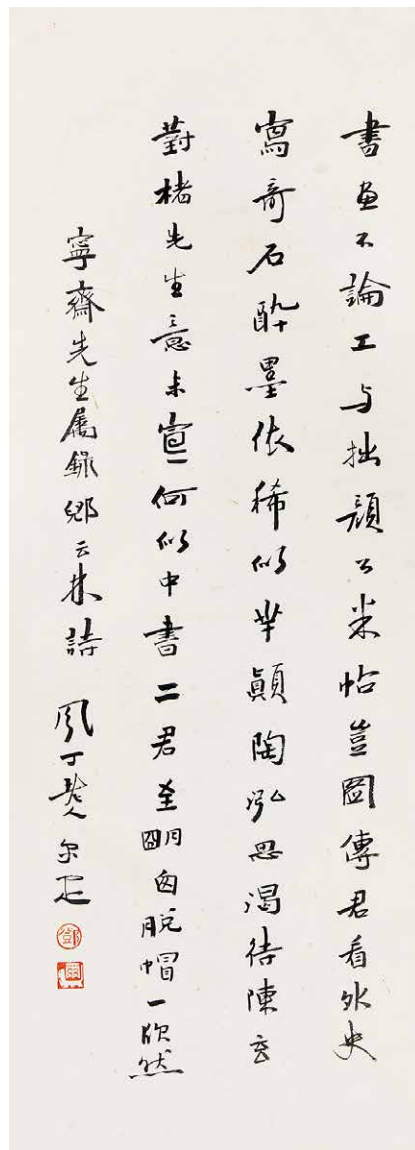 書画不論工与拙顏公米帖豈圖傳君看外史
寫奇石酔墨依稀似芈顛陶泓思渴待陳玄
對楮先生意未宣何似中書二君至明囱脫帽一欣然
寧齋先生属錄鄉云林詩 风丁尔疋
鄧
爾